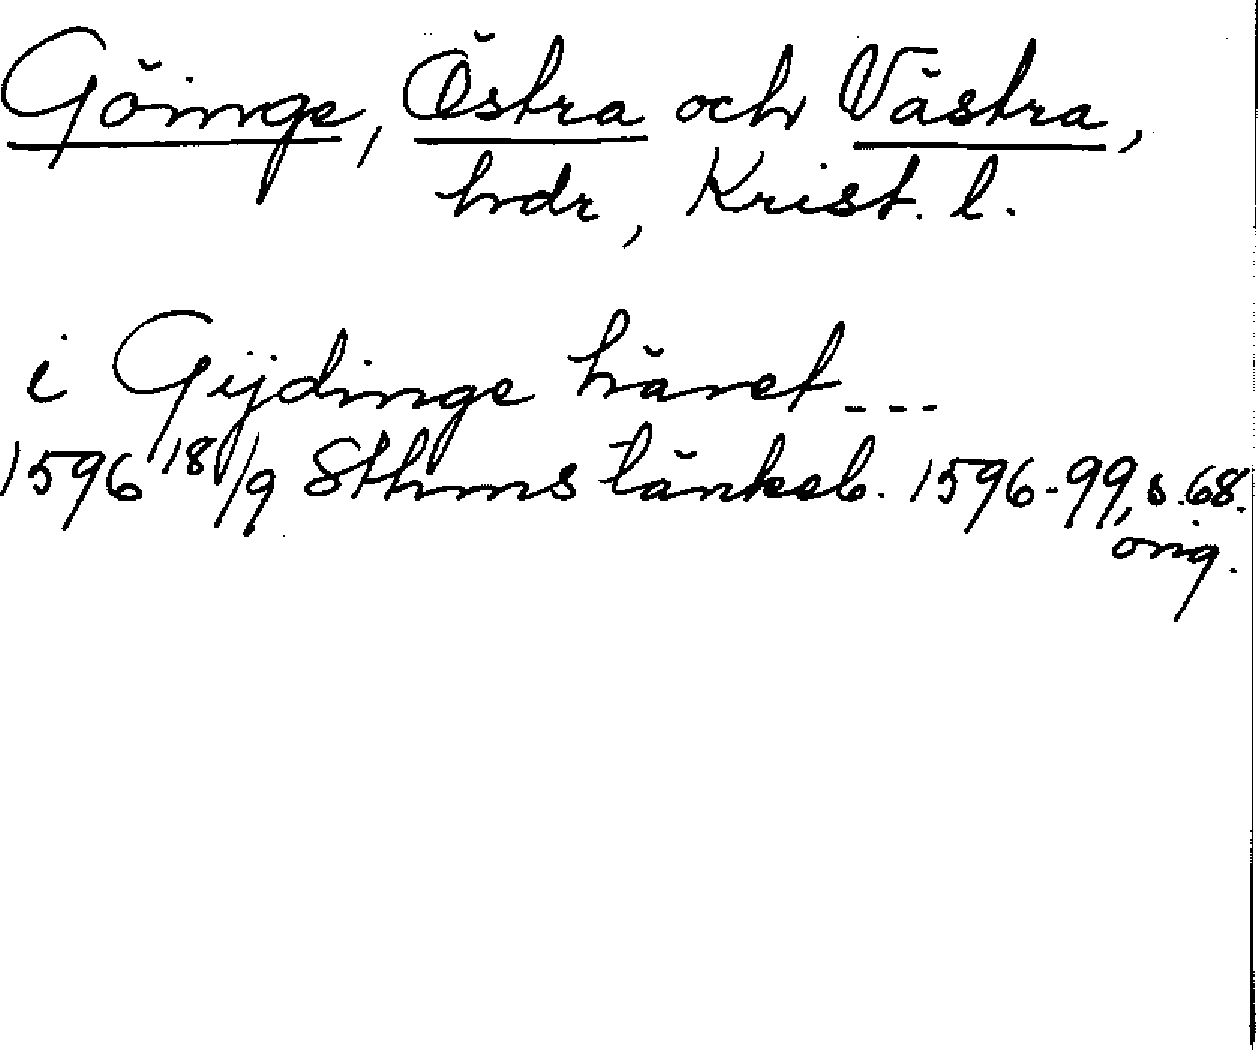 Göinge, Östra och Västra,
hdr, Krist. l.
i Gijdinge häret...
1596 18/9 Sthms tänkeb. 1596-99, s. 68.
orig.